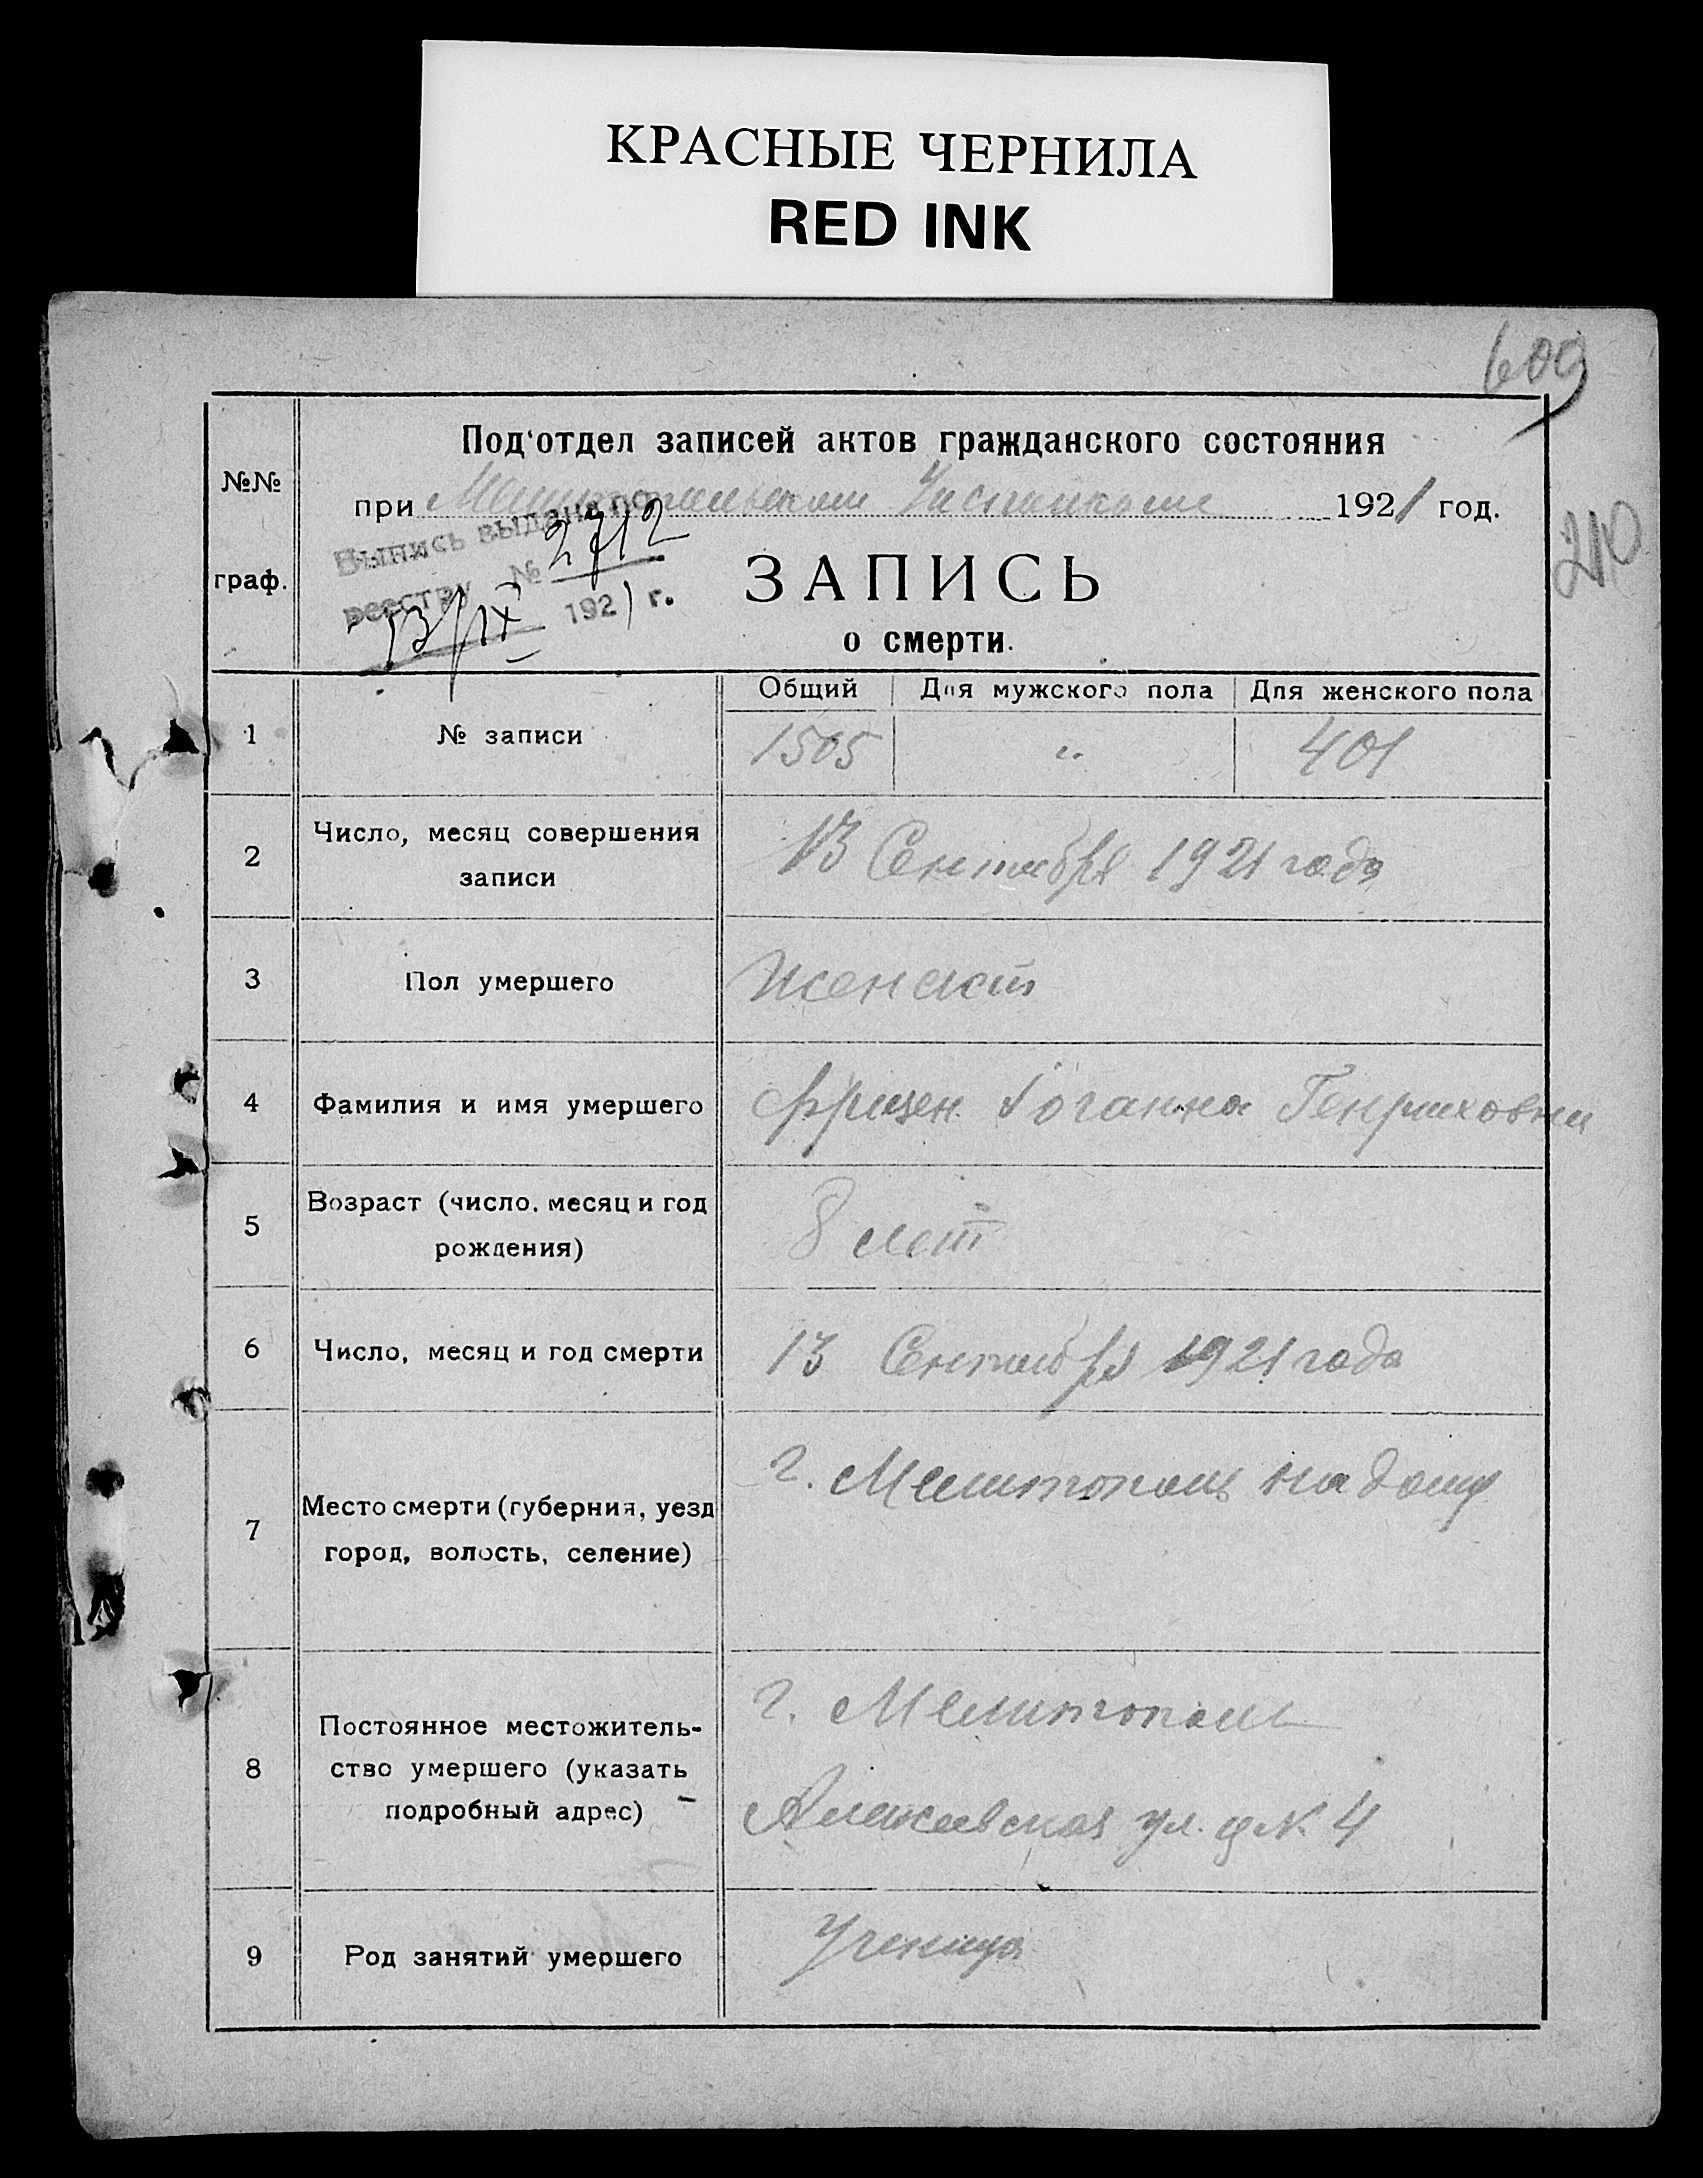 КРАСНЫЕ ЧЕРНИЛА
RED INK
609
Под'отдел записей актов гражданского состояния
№№
при Мелитопольском 1921 год.
210
Выпись выдана по
реестру № 2712
13/IX 1921 г.
граф.
ЗАПИСЬ
о смерти.
Общий Для мужского пола Для женского пола
1 № записи 1505 „ 401
2 Число, месяц совершения
записи
13 Сентября 1921 года
3 Пол умершего Женский
4 Фамилия и имя умершего Фризен Iоганна Генриховна
5 Возраст (число, месяц и год
рождения)
8 лет
6 Число, месяц и год смерти 13 Сентября 1921 года
г. Мелитополь на дому
7 Место смерти (губерния, уезд
город, волость, селение)
г. Мелитополь
8 Постоянное местожитель-
ство умершего (указать
подробный адрес)
Алексеевская ул. д № 4
9 Род занятий умершего Ученица